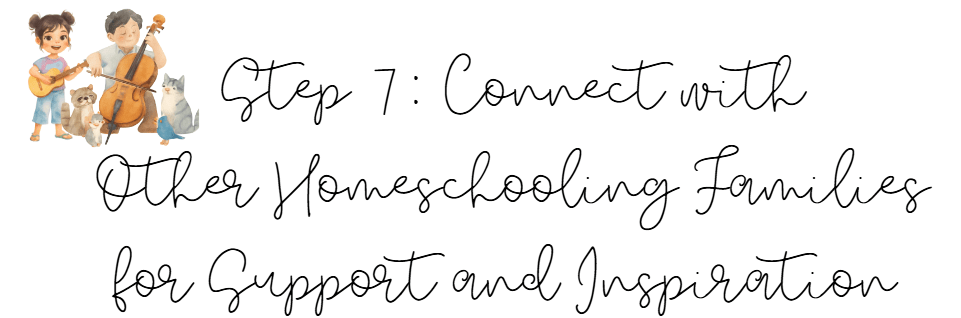 Step 7: Connect with
Other Homeschooling Families
for Support and Inspiration